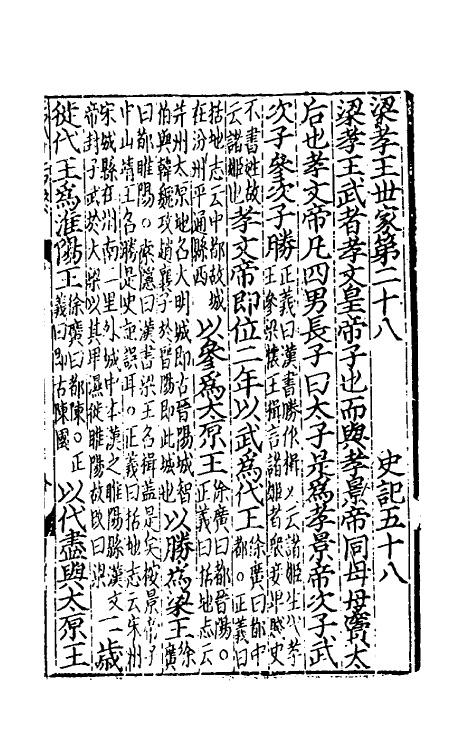 梁孝王世家第二十八　史記五十八
梁孝王武者孝文皇帝子也而與孝景帝同母母竇太
后也孝文帝凡四男長子曰太子是為孝景帝次子武
次子參次子勝正義曰漢書勝作揖又云諸姬生代孝王參梁懷王揖言諸姬者衆妾卑賤史
不書姓故云諸姬也孝文帝即位二年以武為代王徐廣曰都中都。正義曰
括地志云中都故城在汾州平通縣西以參為太原王徐廣曰都晉陽。正義曰括地志云
并州太原地名大明城即古晉陽城智伯與韓魏攻趙襄子於晉陽即此城也以勝為梁王徐廣
曰都睢陽。索隱曰漢書梁王名揖蓋是矣按景帝子中山靖王名勝是史記誤耳。正義曰括地志云宋州
宋城縣在州南二里外城中本漢之睢陽縣漢文帝封子武於大梁以其卑濕徙睢陽故改曰梁二歲
徙代王為淮陽王徐廣曰都陳。正義曰即古陳國以代盡與太原王